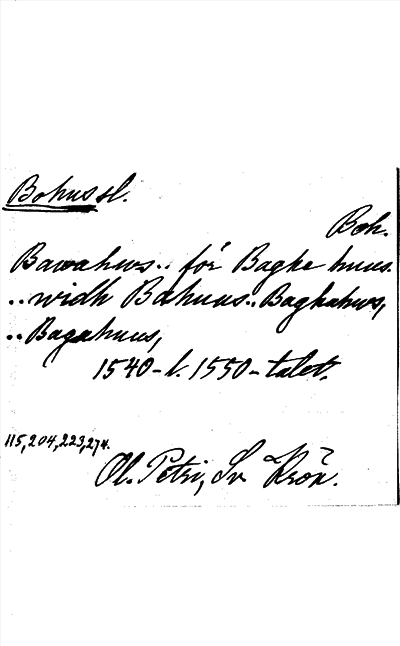 Bohussl.
Boh.
Bawahws.. för Baghe huus.
..widh Bahuus.. Baghahws,
..Bagahuus,
1540- l. 1550-talet.
115, 204, 223, 274.
Ol. Petri, Sv. Krön.